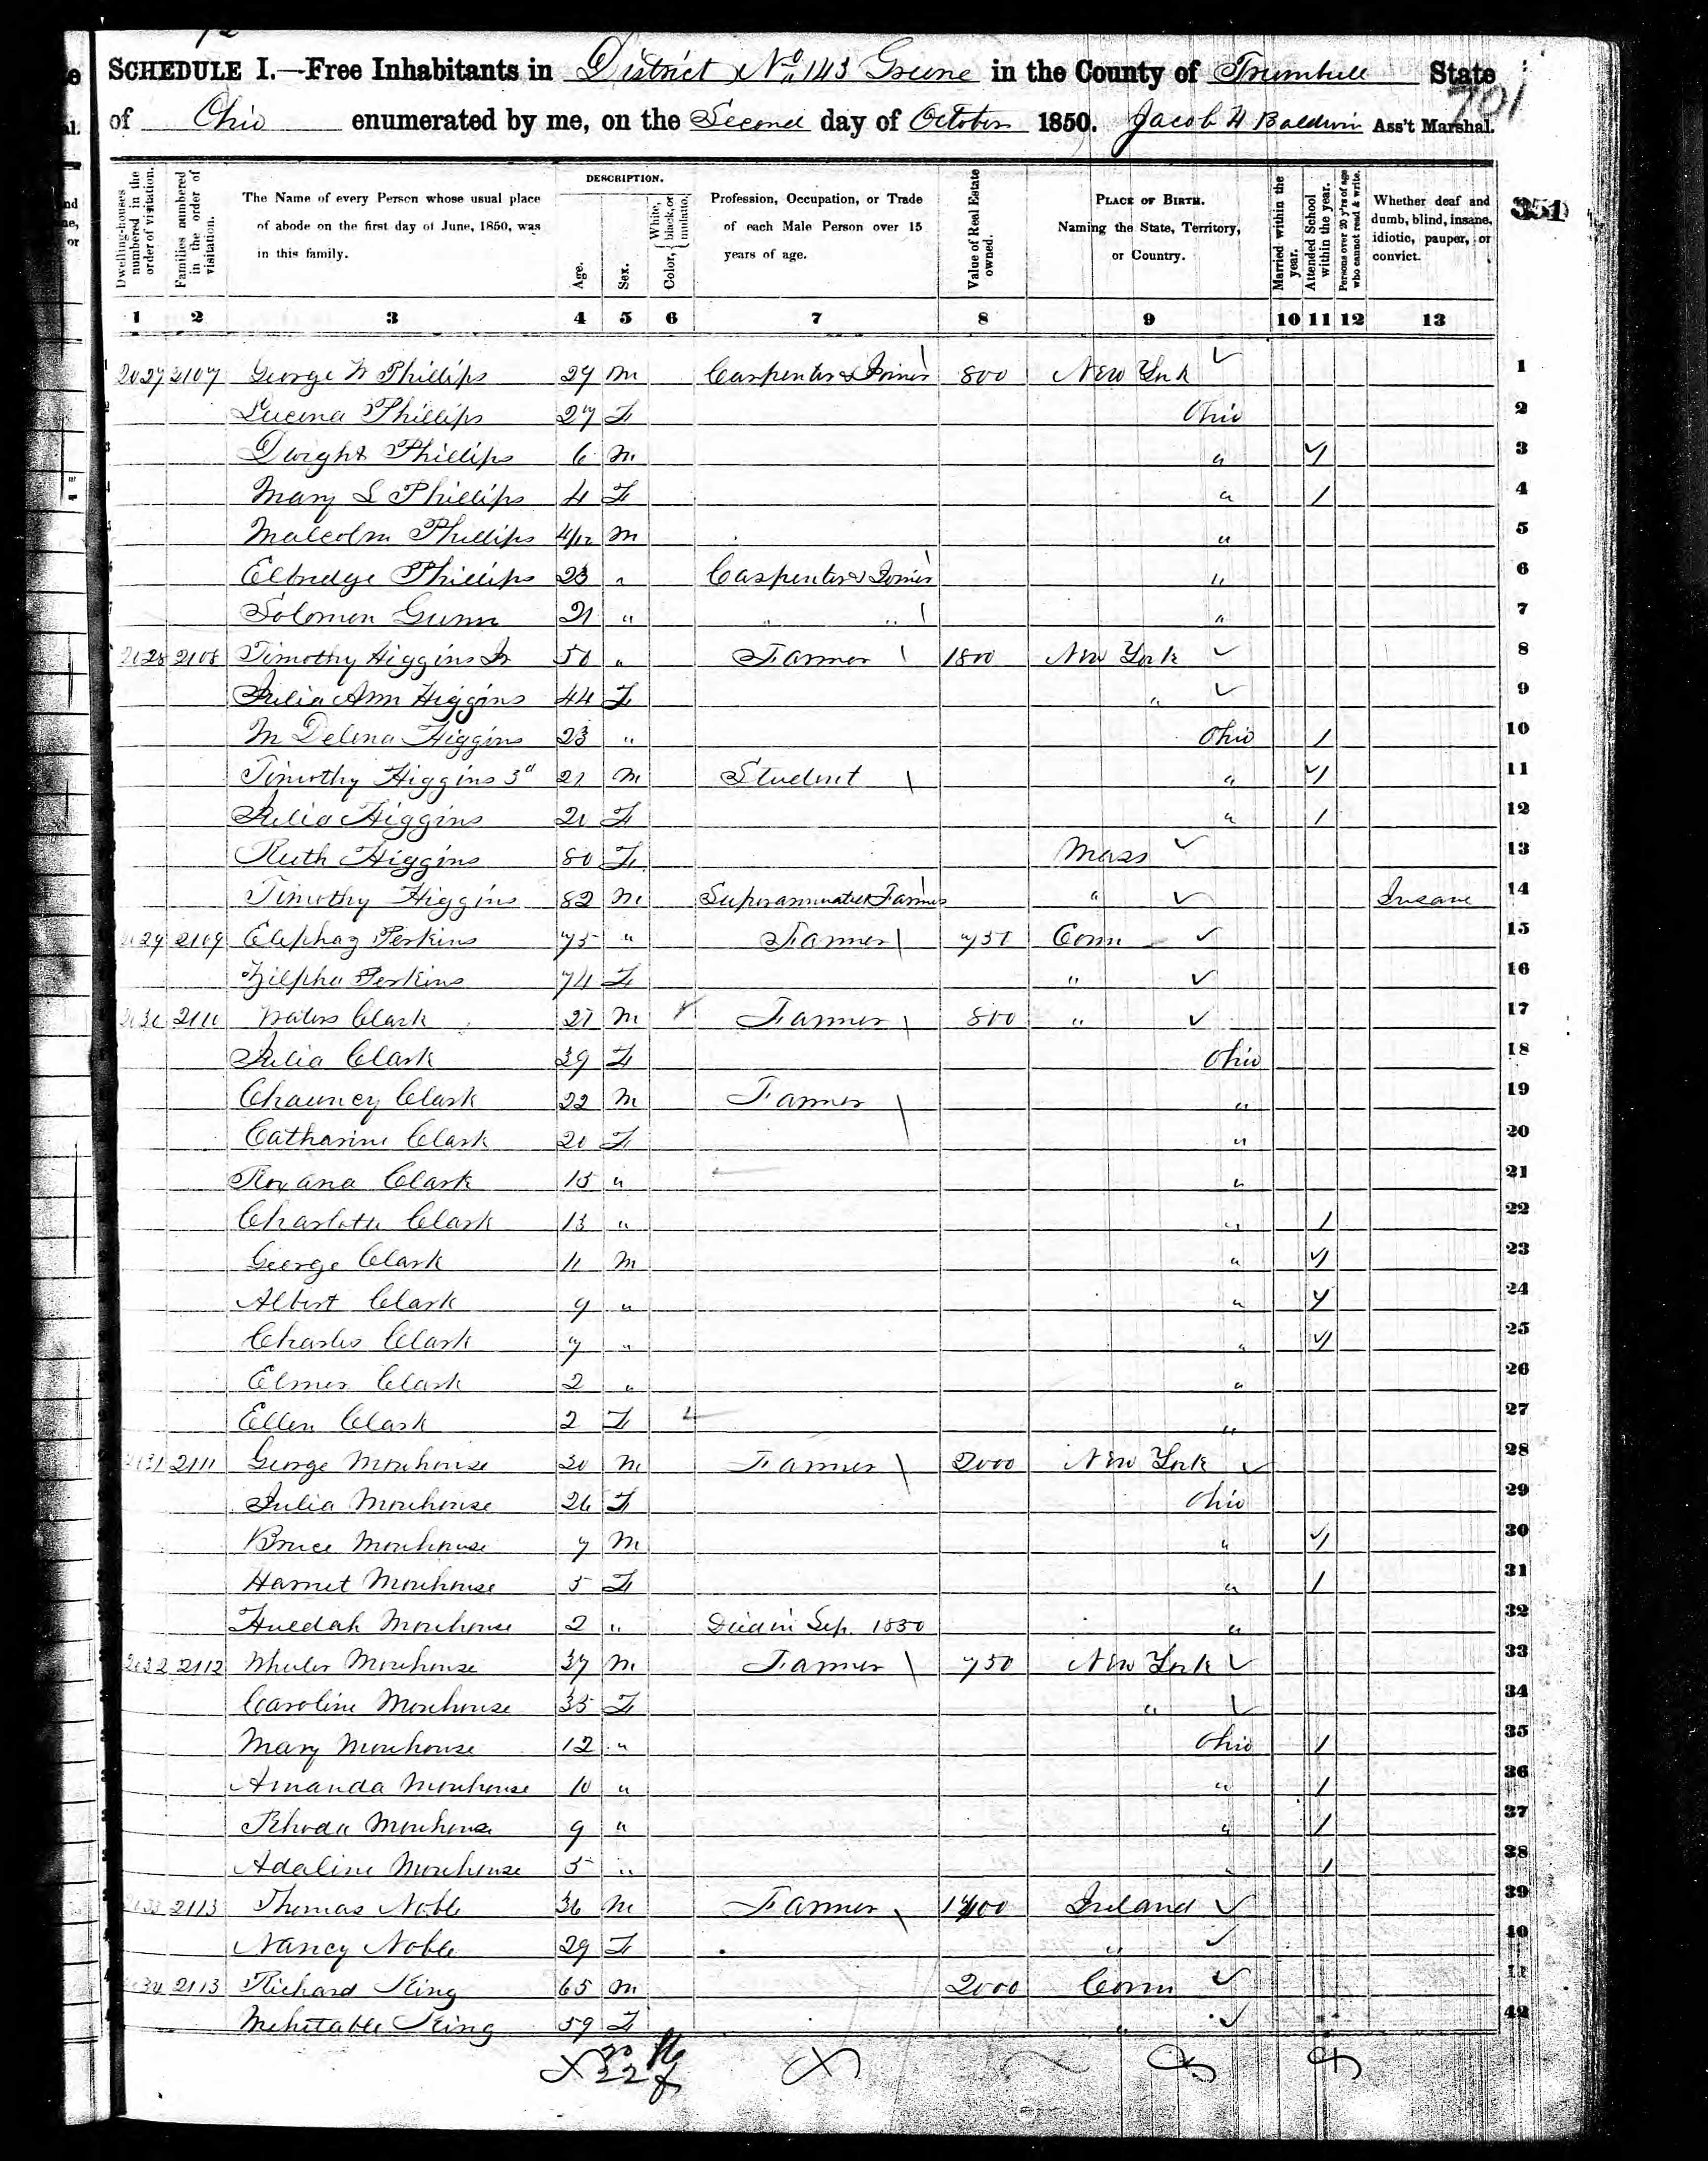 SCHEDULE I.—Free Inhabitants in District No 143 Greene in the County of Trumbull State
of Ohio enumerated by me, on the Second day of October 1850. Jacob H Baldwin Ass't Marshal.
701
351
Dwelling-houses numbered in the order of visitation.
Families numbered in the order of visitation.
The Name of every Person whose usual place of abode on the first day of June, 1850, was in this family.
DESCRIPTION.
Age.
Sex.
Color, { White, black, or mulatto.
Profession, Occupation, or Trade of each Male Person over 15 years of age.
Value of Real Estate owned.
PLACE OF BIRTH. Naming the State, Territory, or Country.
Married within the year.
Attended School within the year.
Persons over 20 y'rs of age who cannot read & write.
Whether deaf and dumb, blind, insane, idiotic, pauper, or convict.
1 2 3 4 5 6 7 8 9 10 11 12 13
2027 2107 George W Phillips 29 M Carpenter & Joiner 800 New York 1
Lucena Phillips 27 F Ohio 2
Dwight Phillips 6 M " 3
Mary L Phillips 4 F " 4
Malcolm Phillips 4/12 M " 5
Elbridge Phillips 23 " Carpenter & Joiner " 6
Solomon Gunn 21 " " " " 7
2028 2108 Timothy Higgins Jr 50 " Farmer 1800 New York 8
Julia Ann Higgins 44 F " 9
M Delena Higgins 23 " Ohio 10
Timothy Higgins 3d 21 M Student " 11
Julia Higgins 20 F " 12
Ruth Higgins 80 F Mass 13
Timothy Higgins 82 M Superannuated Farmer " Insane 14
2029 2109 Eliphaz Perkins 75 " Farmer 750 Conn 15
Zilpha Perkins 74 F " 16
2030 2110 Clark M Farmer 800 " 17
Julia Clark 39 F Ohio 18
Chauncey Clark 22 M Farmer " 19
Catharine Clark 20 F " 20
Roxana Clark 15 " " 21
Charlotte Clark 13 " " 22
George Clark 11 M " 23
Albert Clark 9 " " 24
Charles Clark 7 " " 25
Elmer Clark 2 " " 26
Ellen Clark 2 F " 27
2031 2111 George Morehouse 30 M Farmer 2000 New York 28
Julia Morehouse 26 F Ohio 29
Bruce Morehouse 7 M " 30
Harriet Morehouse 5 F " 31
Huldah Morehouse 2 " Died in Sep. 1850 " 32
2032 2112 Wheeler Morehouse 37 M Farmer 750 New York 33
Caroline Morehouse 35 F " 34
Mary Morehouse 12 " Ohio 35
Amanda Morehouse 10 " " 36
Rhoda Morehouse 9 " " 37
Adaline Morehouse 5 " " 38
2033 2113 Thomas Noble 36 M Farmer Ireland 39
Nancy Noble 29 F " 40
2034 2113 Richard King 65 M 2000 Conn 41
Mehitable King 59 F " 42